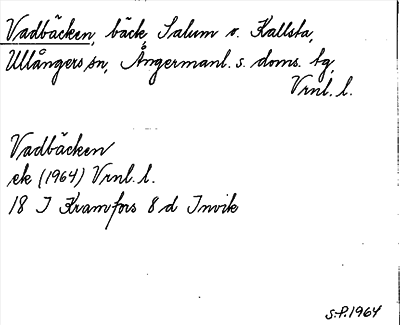 Vadbäcken, bäck, Salum o. Kallsta,
Ullångers sn, Ångermanl. s. doms. tg,
Vrnl. l.
Vadbäcken
ek (1964) Vrnl. l.
18 I Kramfors 8 d Invik
S.P. 1964